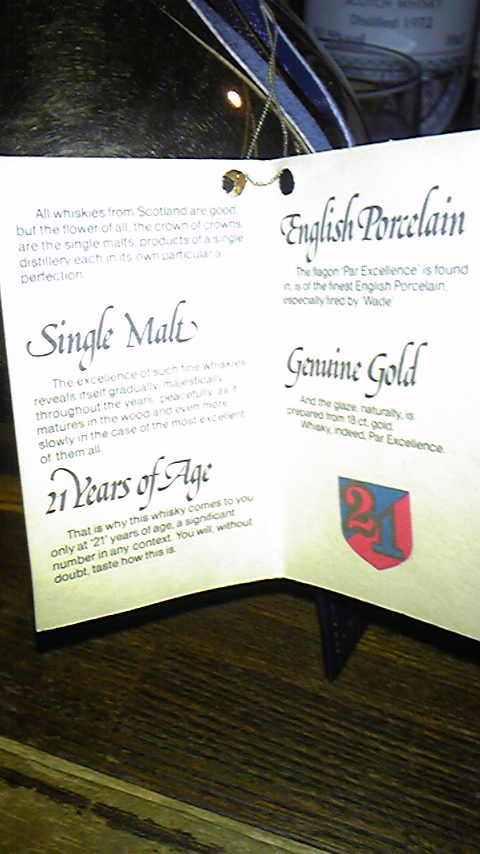 SCOTCH WHISKY
Distilled 1972
All whiskies from Scotland are good,
but the flower of all, the crown of crowns
are the single malts, products of a single
distillery each in its own particular a
perfection.
Single Malt
The excellence of such fine whiskies
reveals itself gradually, majestically
throughout the years, peacefully, as it
matures in the wood and even more
slowly in the case of the most excellent
of them all.
21 Years of Age
That is why this whisky comes to you
only at "21" years of age, a significant
number in any context. You will, without
doubt, taste how this is.
English Porcelain
The flagon 'Par Excellence' is found
in, is of the finest English Porcelain,
especially fired by 'Wade'
Genuine Gold
And the glaze, naturally, is
prepared from 18 ct. gold.
Whisky, indeed, Par Excellence.
21